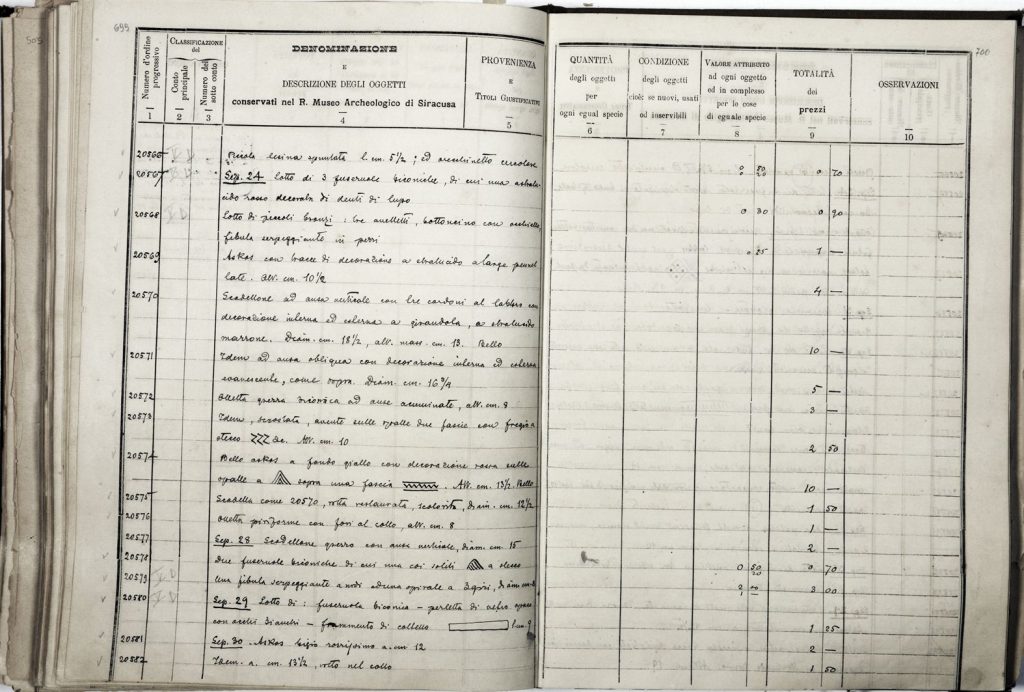 699
505
Numero d'ordine progressivo
1
CLASSIFICAZIONE del
Conto principale
2
Numero del sotto conto
3
DENOMINAZIONE
E
DESCRIZIONE DEGLI OGGETTI
conservati nel R. Museo Archeologico di Siracusa
4
PROVENIENZA
E
TITOLI GIUSTIFICATIVI
5
20566 Piccola lesina spuntata l. cm. 5 1/2; ed orecchinetto
20567 Sep. 24 lotto di 3 fuseruole biconiche, di cui una a
rosso decorata di denti di lupo
20568 Lotto di piccoli bronzi: tre anelletti, bottoncino con occhiello
fibula serpeggiante in pezzi
20569 Askos con tracce di decorazione a stralucido a large pennel
late. Alt. cm. 10 1/2
20570 Scodellone ad ansa verticale con tre cordoni al labbro con
decorazione interna ed esterna a girandola, a stralucido
marrone. Diam. cm. 18 1/2, alt. mass. cm. 13. Bello
20571 Idem ad ansa obliqua con decorazione interna ed esterna
evanescente, come sopra. Diam. cm. 16 3/4
20572 Olletta grezza biconica ad anse acuminate, alt. cm. 8
20573 Idem, scrostata, avente sulle spalle due fascie con fregio a
stecco &c. Alt. cm. 10
20574 Bello askos a fondo giallo con decorazione rossa sulle
spalle a sopra una fascia . Alt. cm. 13 1/2. Bello
20575 Scodella come 20570, rotta restaurata, scolorita, diam. cm. 12 1/2
20576 Olletta piriforme con fori al collo, alt. cm. 8
20577 Sep. 28 Scodellone grezzo con ansa verticale, diam. cm. 15
20578 Due fuseruole biconiche di cui una coi soliti a stecco
20579 Una fibula serpeggiante a nodi ed una spirale a 3 giri, diam.
20580 Sep. 29 Lotto di: fuseruola biconica – perletta di vetro opaco
con occhi bianchi – frammento di coltello l. cm. 9
20581 Sep. 30. Askos bigio rozzissimo a. cm 12
20582 Idem. a. cm. 13 1/2, rotto nel collo
700
QUANTITÀ
degli oggetti
per
ogni egual specie
6
CONDIZIONE
degli oggetti
cioè: se nuovi, usati
od inservibili
7
VALORE ATTRIBUITO
ad ogni oggetto
ed in complesso
per le cose
di eguale specie
8
TOTALITÀ
dei
prezzi
9
OSSERVAZIONI
10
0 50
0 20 0 70
0 30 0 90
0 25 1 —
4 —
10 —
5 —
3 —
2 50
10 —
1 50
1 —
2 —
0 50
0 70
3 00
1 25
2 —
1 50